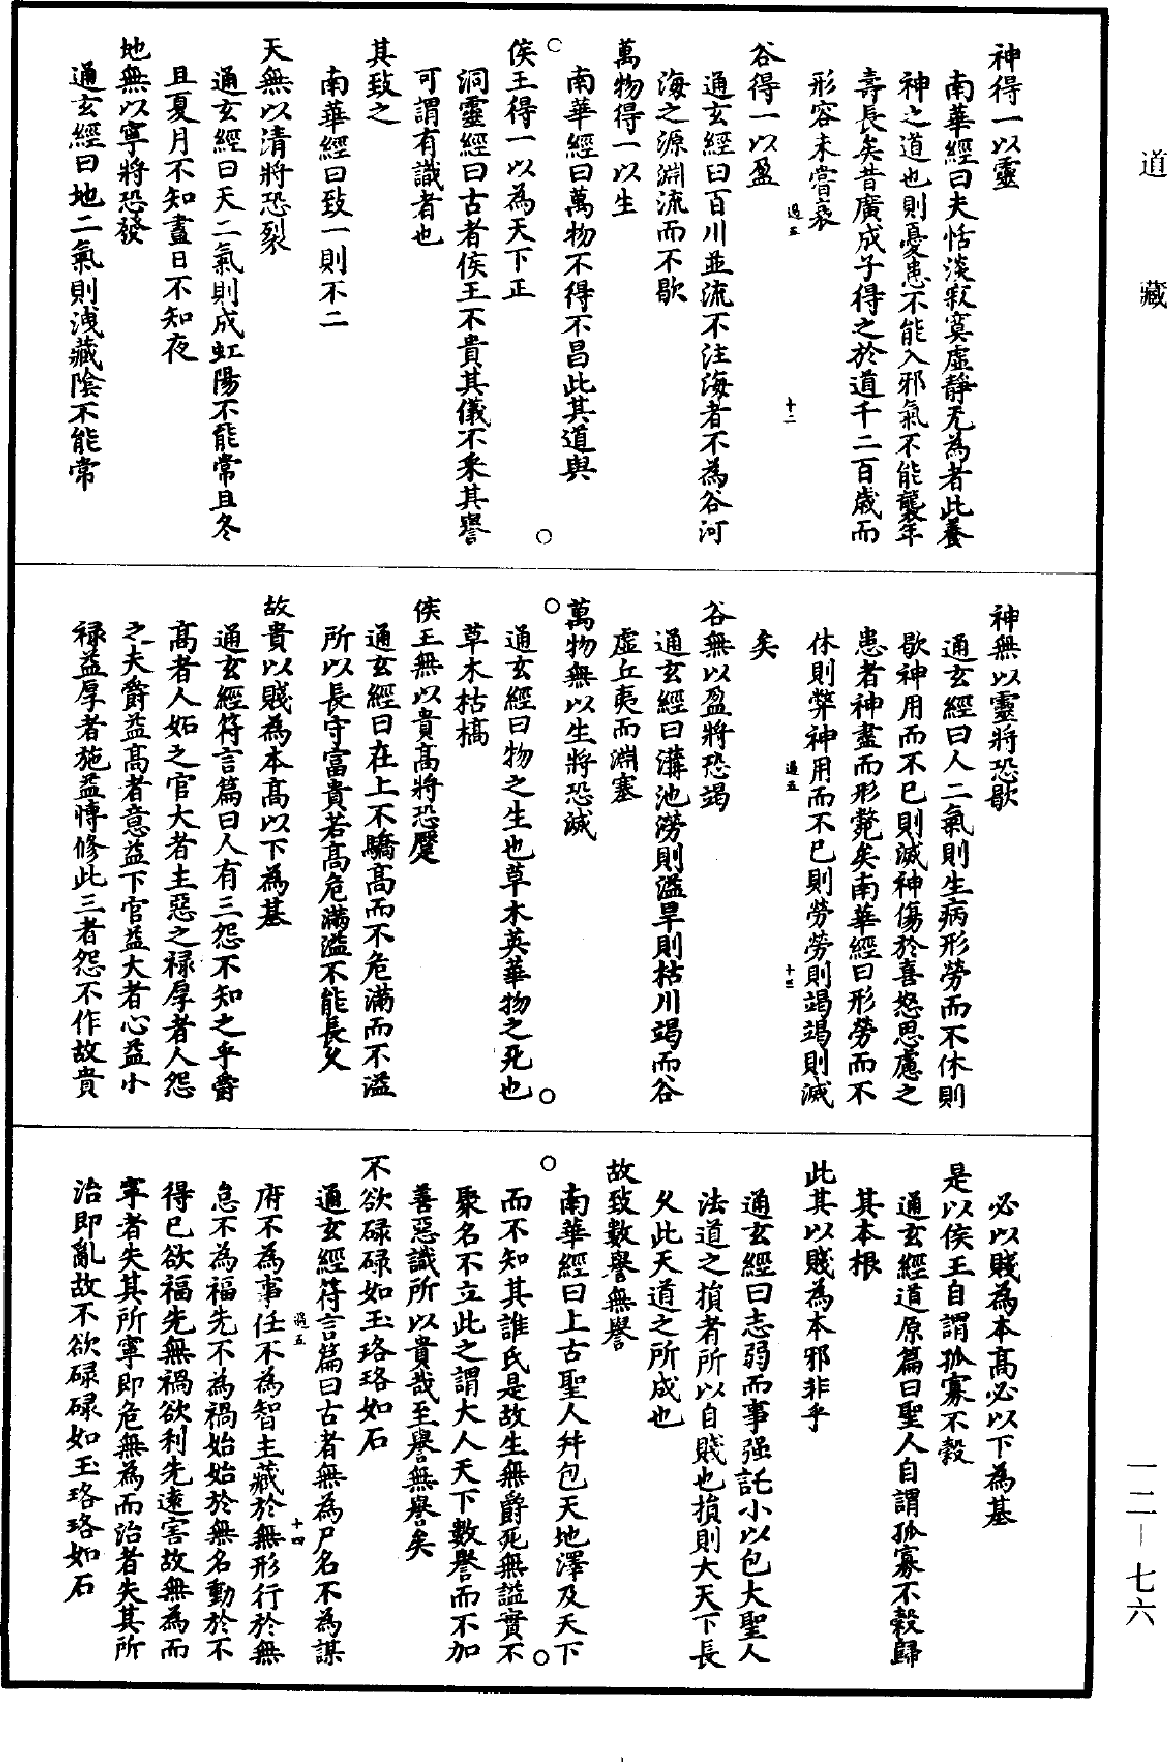 道藏
神得一以靈
南華經曰夫恬淡寂寞虛靜无為者此養
神之道也則憂患不能入邪氣不能襲年
壽長矣昔廣成子得之於道千二百歲而
形容未嘗衰
過五
十二
谷得一以盈
通玄經曰百川並流不注海者不為谷河
海之源淵流而不歇
萬物得一以生
南華經曰萬物不得不昌此其道與
侯王得一以為天下正
洞靈經曰古者侯王不貴其儀不釆其譽
可謂有識者也
其致之
南華經曰致一則不二
天無以清將恐裂
通玄經曰天二氣則成虹陽不能常且冬
且夏月不知晝日不知夜
地無以寧將恐發
通玄經曰地二氣則洩藏陰不能常
神無以靈將恐歇
通玄經曰人二氣則生病形勞而不休則
歇神用而不已則滅神傷於喜怒思慮之
患者神盡而形斃矣南華經曰形勞而不
休則弊神用而不已則勞勞則竭竭則滅
過五
十三
矣
谷無以盈將恐竭
通玄經曰溝池澇則溢旱則枯川竭而谷
虛丘夷而淵塞
萬物無以生將恐滅
通玄經曰物之生也草木英華物之死也
草木枯槁
侯王無以貴高將恐蹷
通玄經曰在上不驕高而不危滿而不溢
所以長守富貴若高危滿溢不能長久
故貴以賤為本高以下為基
通玄經符言篇曰人有三怨不知之乎爵
高者人妬之官大者主惡之祿厚者人怨
之夫爵益高者意益下官益大者心益小
祿益厚者施益博修此三者怨不作故貴
必以賤為本高必以下為基
是以侯王自謂孤寡不穀
通玄經道原篇曰聖人自謂孤寡不穀歸
其本根
此其以賤為本邪非乎
通玄經曰志弱而事强託小以包大聖人
法道之損者所以自賤也損則大天下長
久此天道之所成也
故致數譽無譽
南華經曰上古聖人并包天地澤及天下
而不知其誰氏是故生無爵死無謚實不
聚名不立此之謂大人天下數譽而不加
善惡識所以貴哉至譽無譽矣
不欲碌碌如玉珞珞如石
通玄經符言篇曰古者無為尸名不為謀
過五
十四
府不為事任不為智主藏於無形行於無
怠不為福先不為禍始始於無名動於不
得已欲福先無禍欲利先遠害故無為而
寧者失其所寧即危無為而治者失其所
治即亂故不欲碌碌如玉珞珞如石
一二－七六